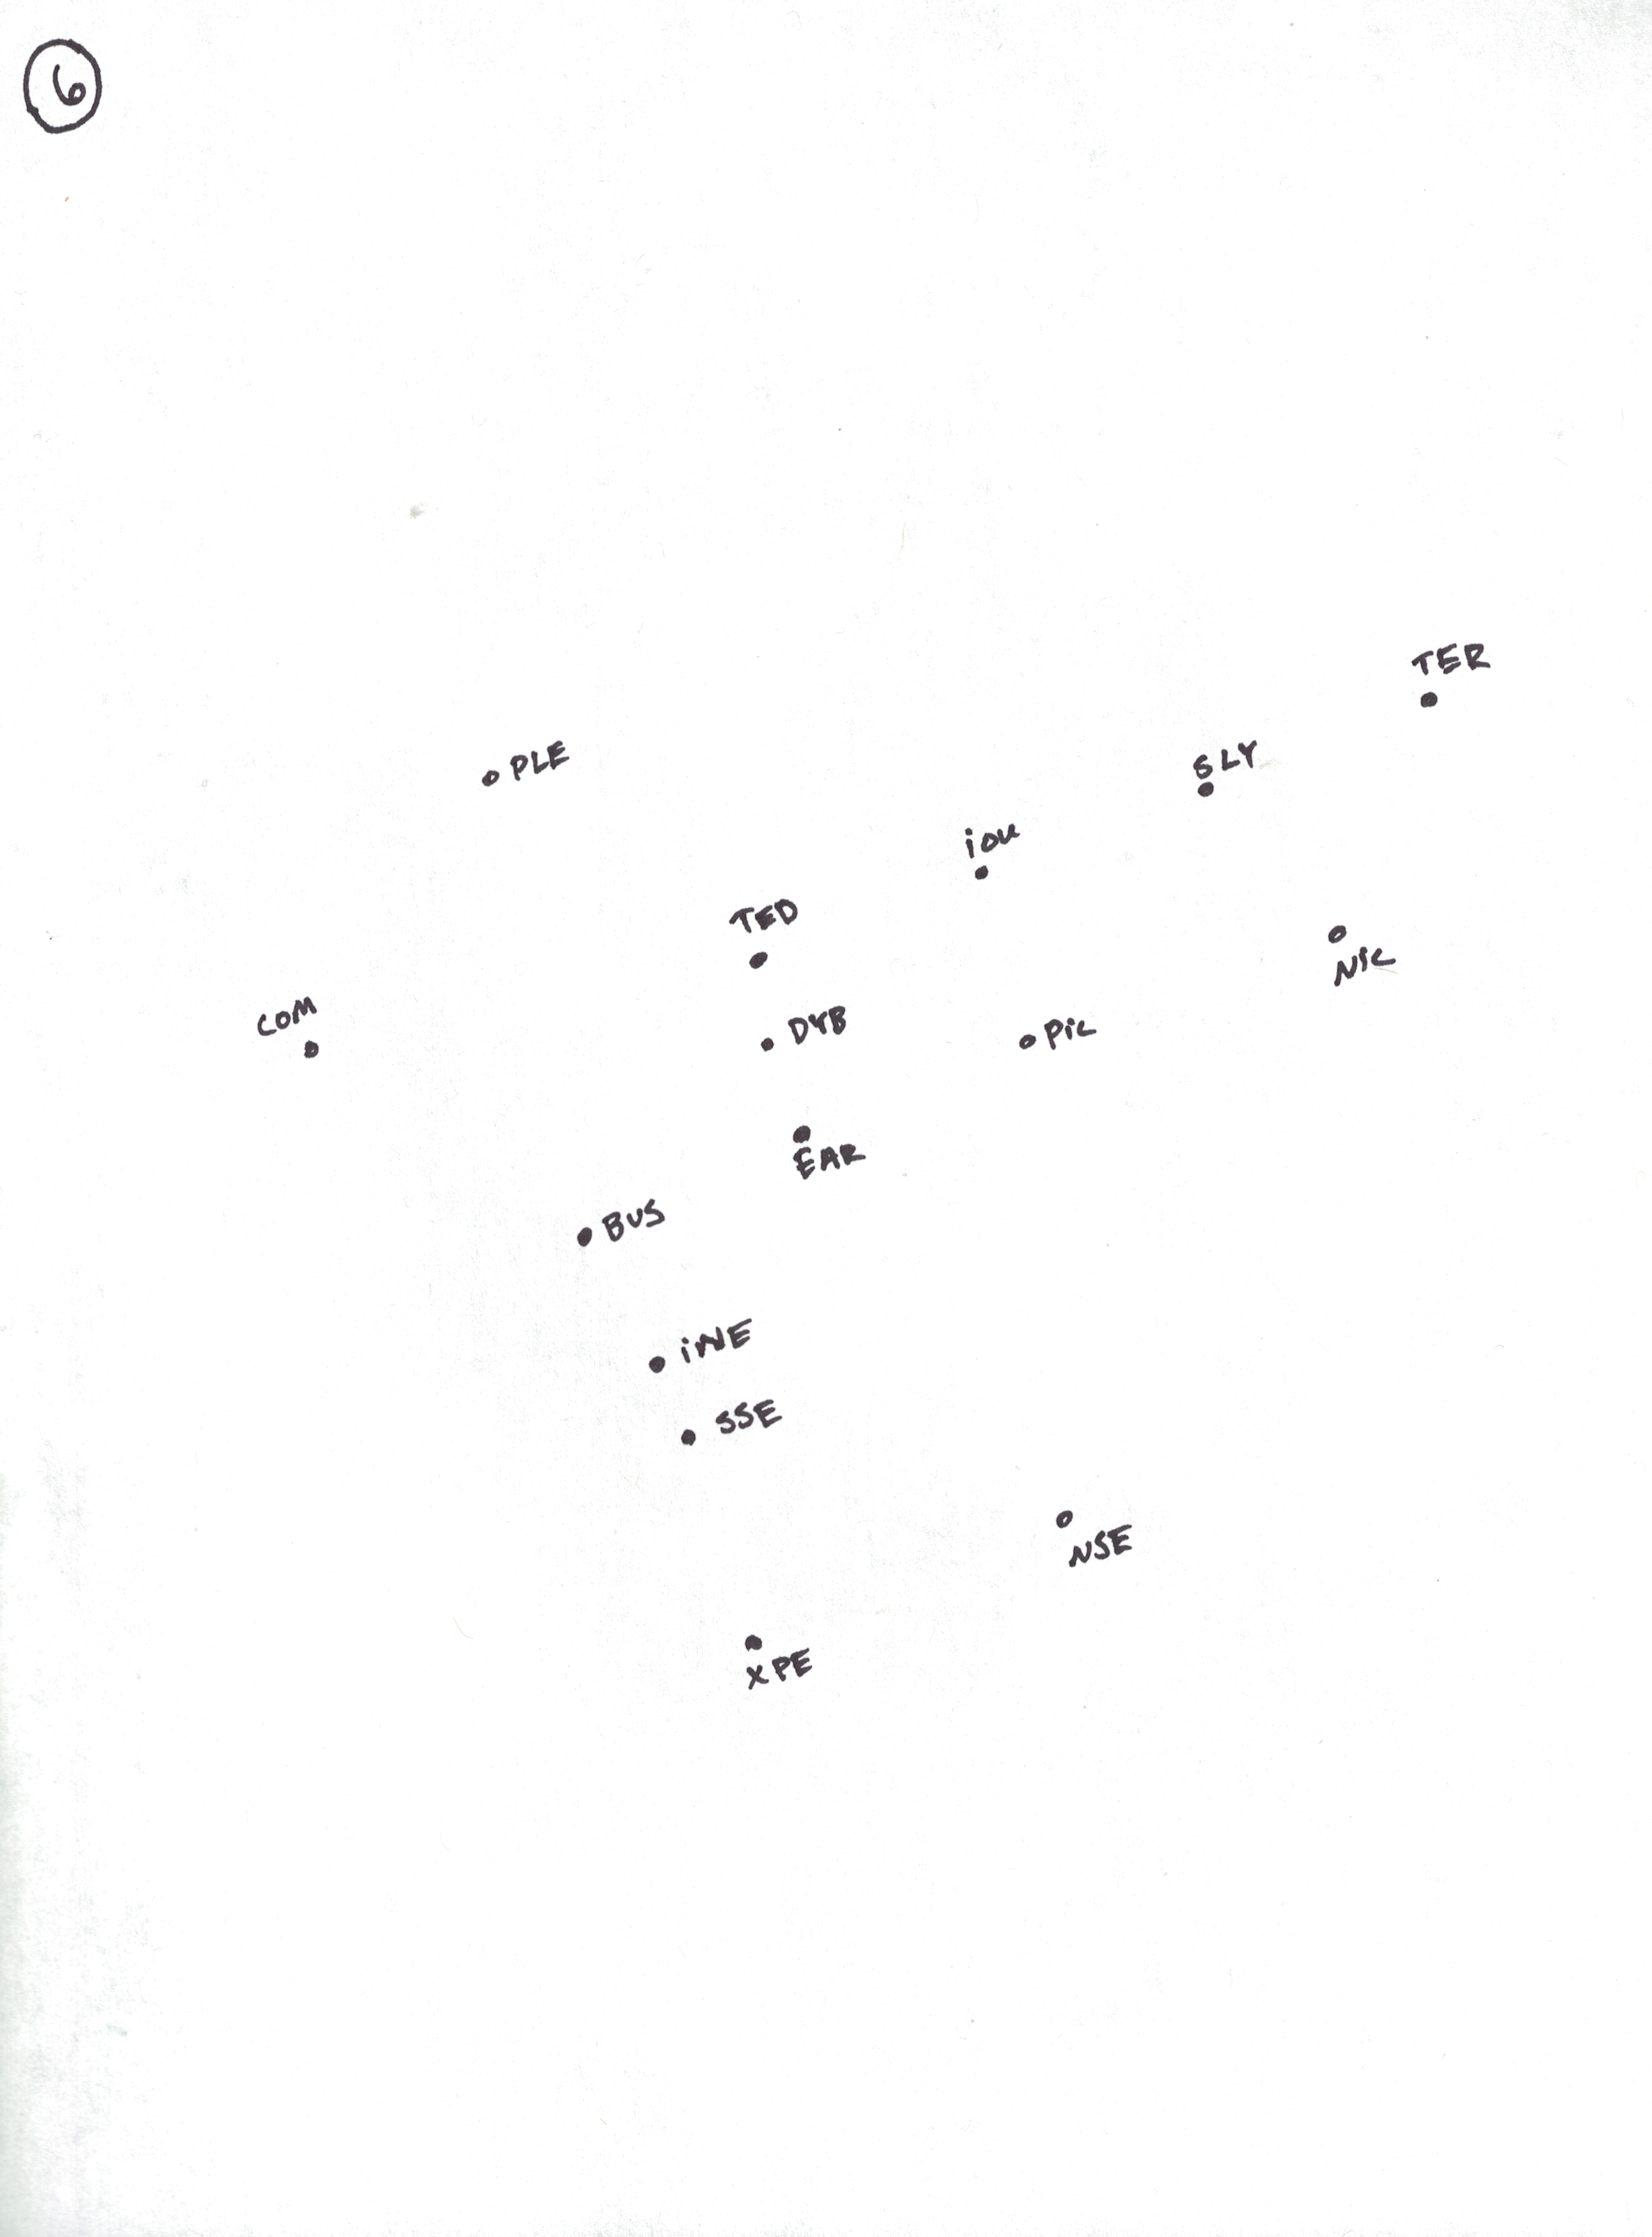 6
TER
PLE
SLY
iou
TED
NiC
COM
DYB
PiC
EAR
BUS
iNE
SSE
NSE
XPE